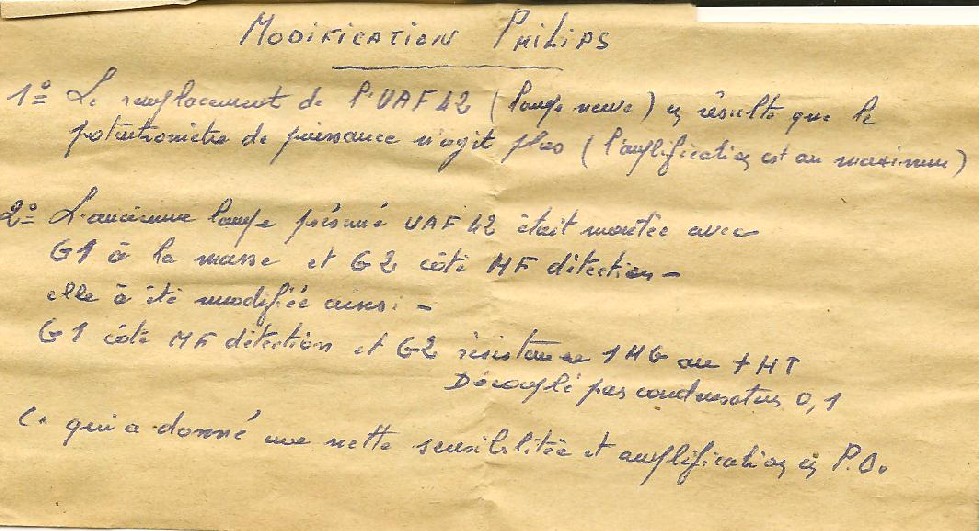 MODIFICATION PHILIPS
1º Le remplacement de l'UAF 42 (lampe neuve) en résulte que le
potentiomètre de puissance n'agit plus (l'amplification est au maximum)
2º L'ancienne lampe présumé UAF 42 était montée avec
G1 à la masse et G2 côté MF détection -
elle à été modifiée ainsi -
G1 côté MF détection et G2 résistance 1MG au + HT
Découplé pas condensateur 0,1
Ce qui a donné une nette sensibilitée et amplification en P.O.